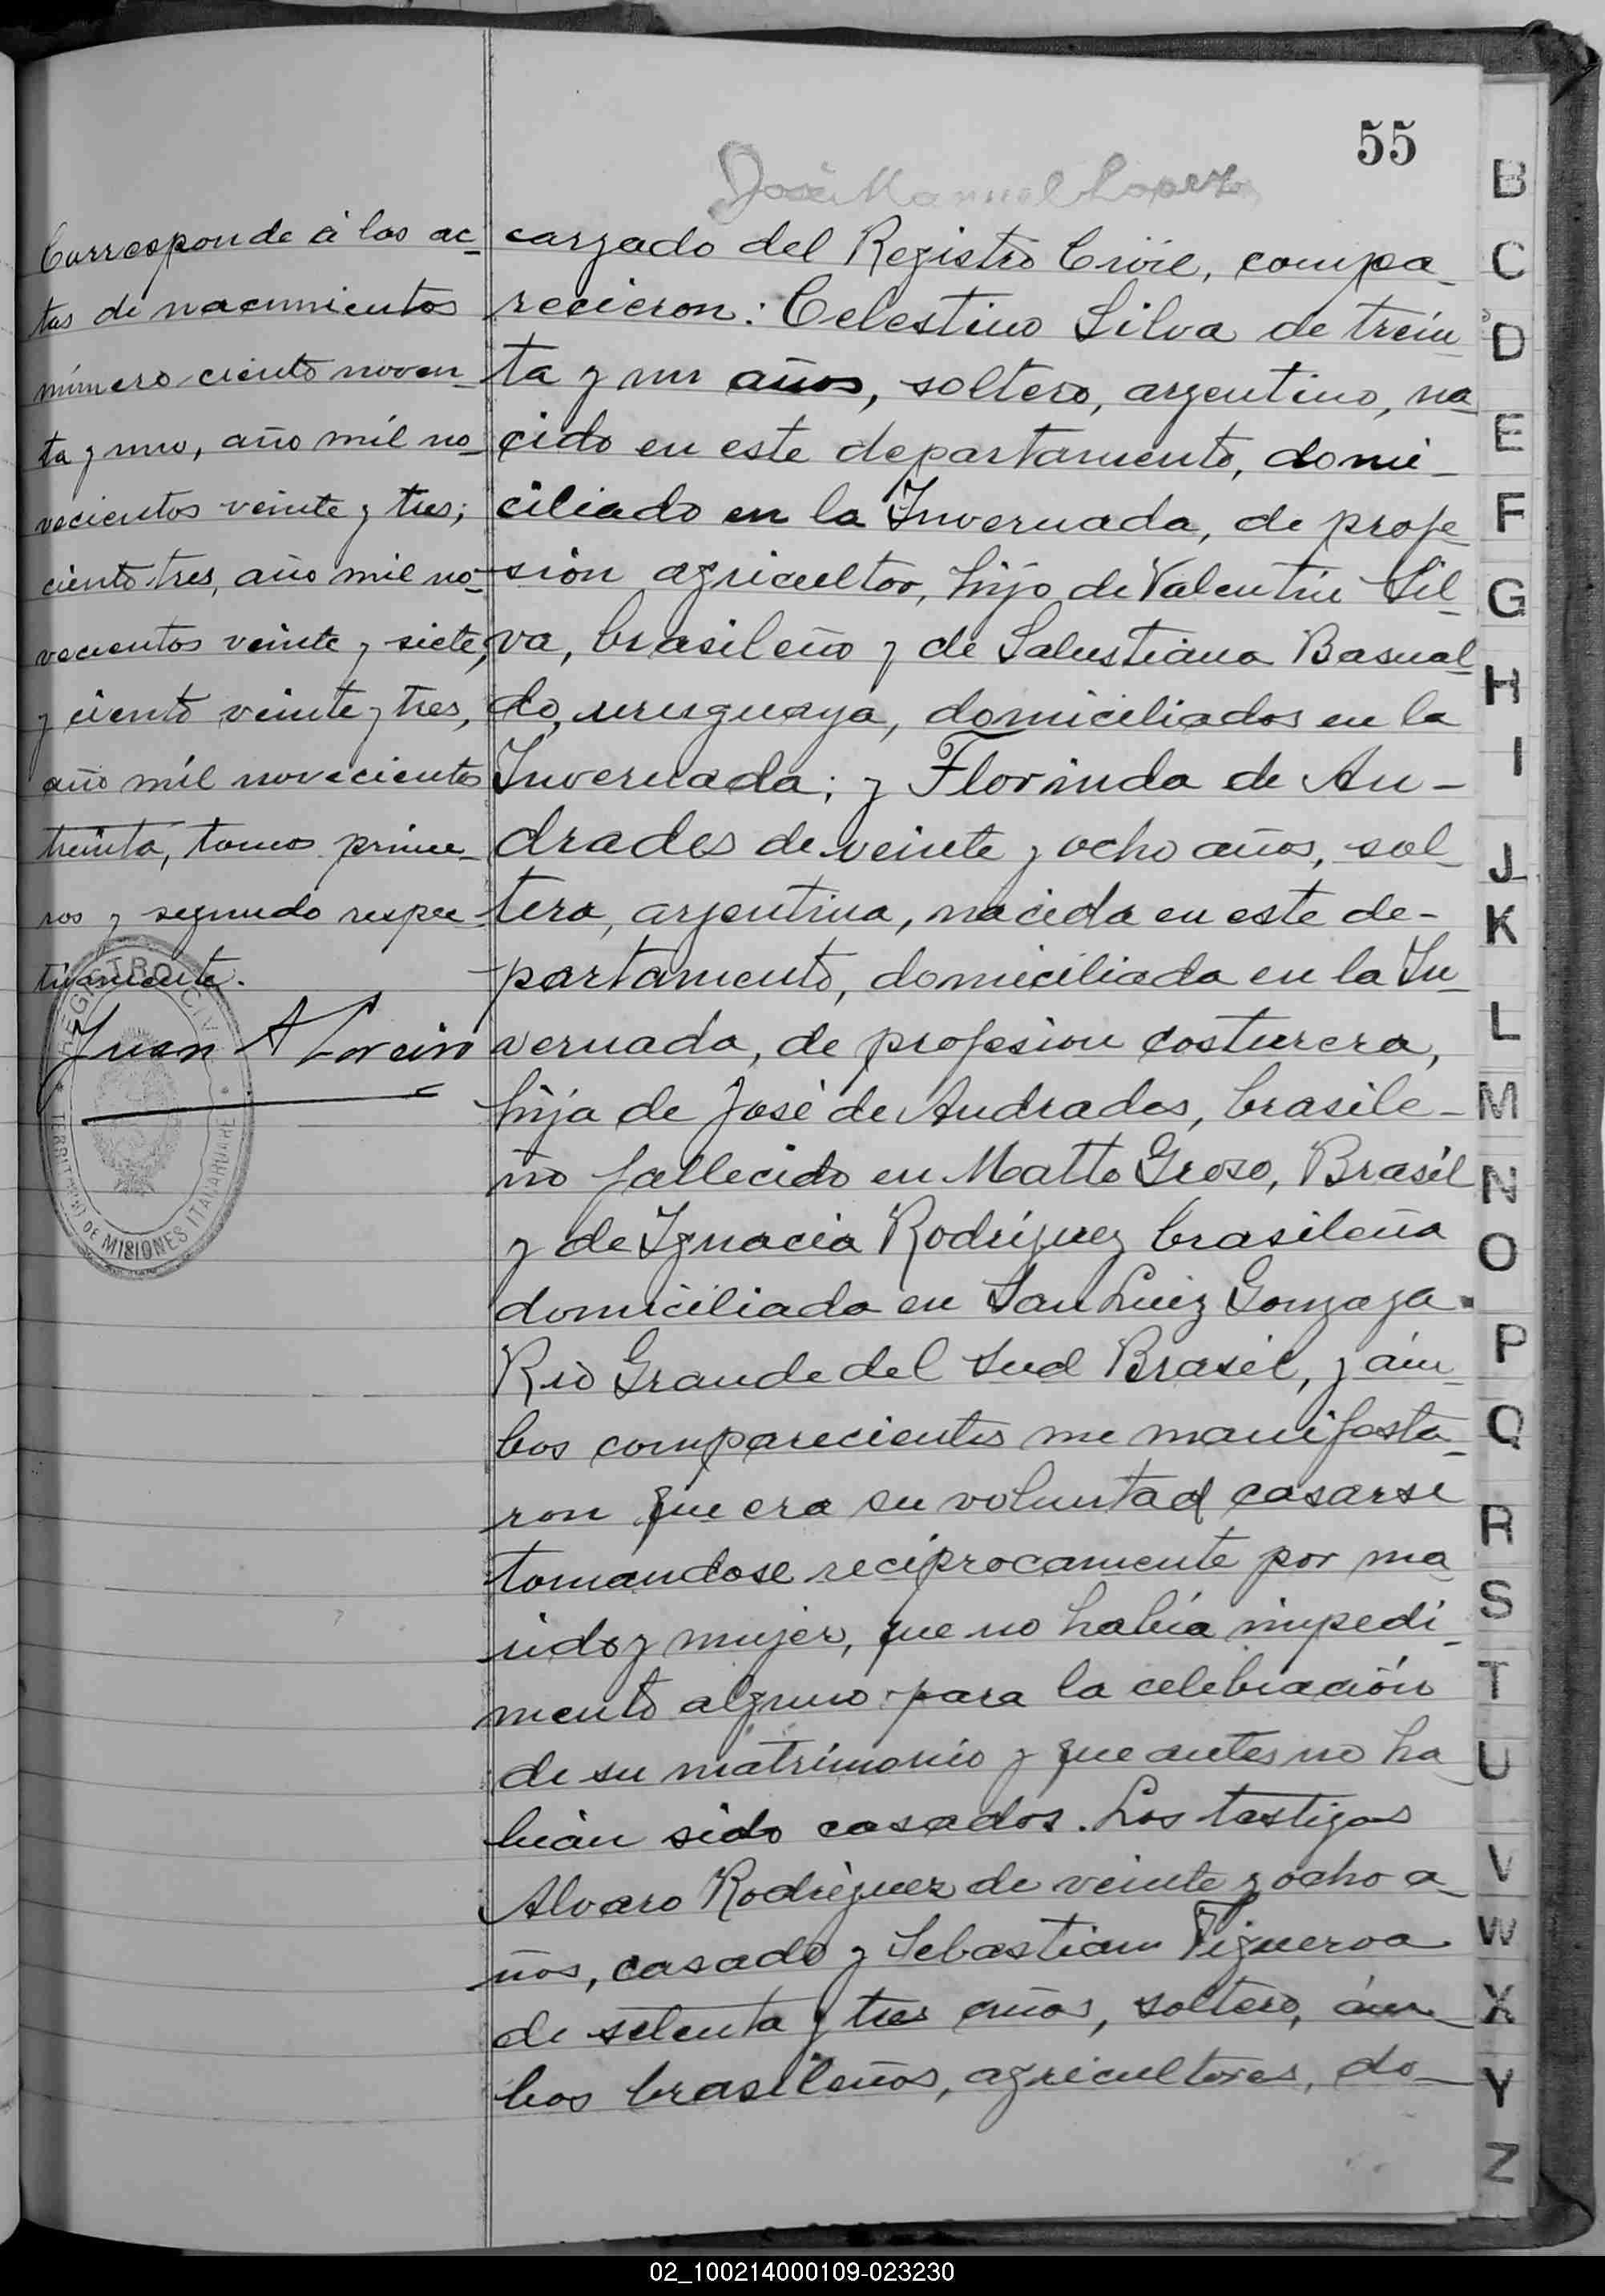 55
José Manuel Lopez
Corresponde á las ac-
tas de nacimientos
número ciento noven-
ta y uno, año mil no-
vecientos veinte y tres;
ciento tres, año mil no-
vecientos veinte y siete,
y ciento veinte y tres,
año mil novecientos
treinta, tomos prime-
ros y segundo respec-
tivamente.
Juan A
REGISTRO CIVIL
TERRITORIO DE MISIONES ITACARUARE
cargado del Registro Civil, compa-
recieron: Celestino Silva de trein-
ta y un años, soltero, argentino, na-
cido en este departamento, domi-
ciliado en la Invernada, de profe-
sión agricultor, hijo de Valentín Sil-
va, brasileño y de Salustiana Basual-
do, uruguaya, domiciliados en la
Invernada; y Florinda de An-
drades de veinte y ocho años, sol-
tera, argentina, nacida en este de-
partamento, domiciliada en la In-
vernada, de profesion costurera,
hija de José de Andrades, brasile-
ño fallecido en Matto Groso, Brasil
y de Ignacia Rodriguez brasileña
domiciliada en San Luiz Gonzaga
Rio Grande del Sud Brasil, y ám-
bos comparecientes me manifesta-
ron que era su voluntad casarse
tomandose reciprocamente por ma-
rido y mujer, que no había impedi-
mento alguno para la celebración
de su matrimonio y que antes no ha-
bían sido casados. Los testigos
Alvaro Rodriguez de veinte y ocho a-
ños, casado y Sebastian Figueroa
de setenta y tres años, soltero, ám-
bos brasileños, agricultores, do-
B
C
D
E
F
G
H
I
J
K
L
M
N
O
P
Q
R
S
T
U
V
W
X
Y
Z
02_100214000109-023230